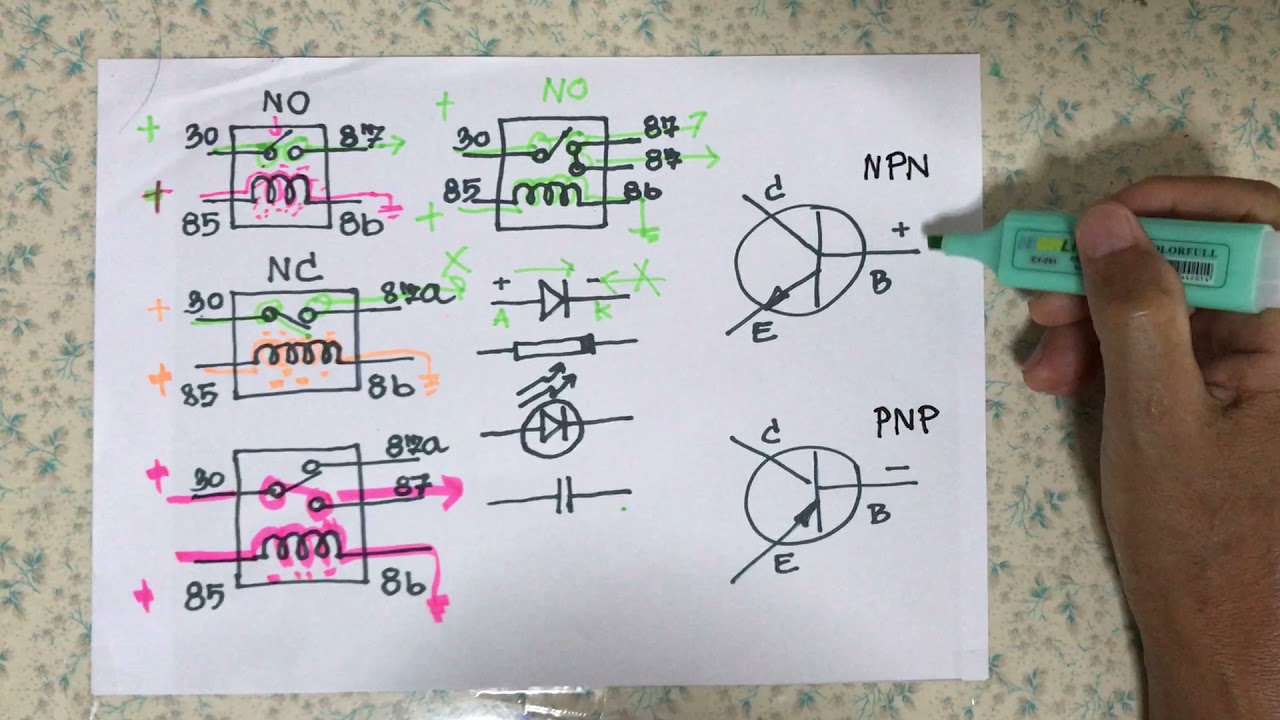 NO
+
30
87
+
85
86
NO
+
30
87
87
85
86
+
NC
+
30
87a
X
+
85
86
+ - X
A K
+
30
87a
87
+
85
86
NPN
C
+
B
E
PNP
C
-
B
E
OLORFULL